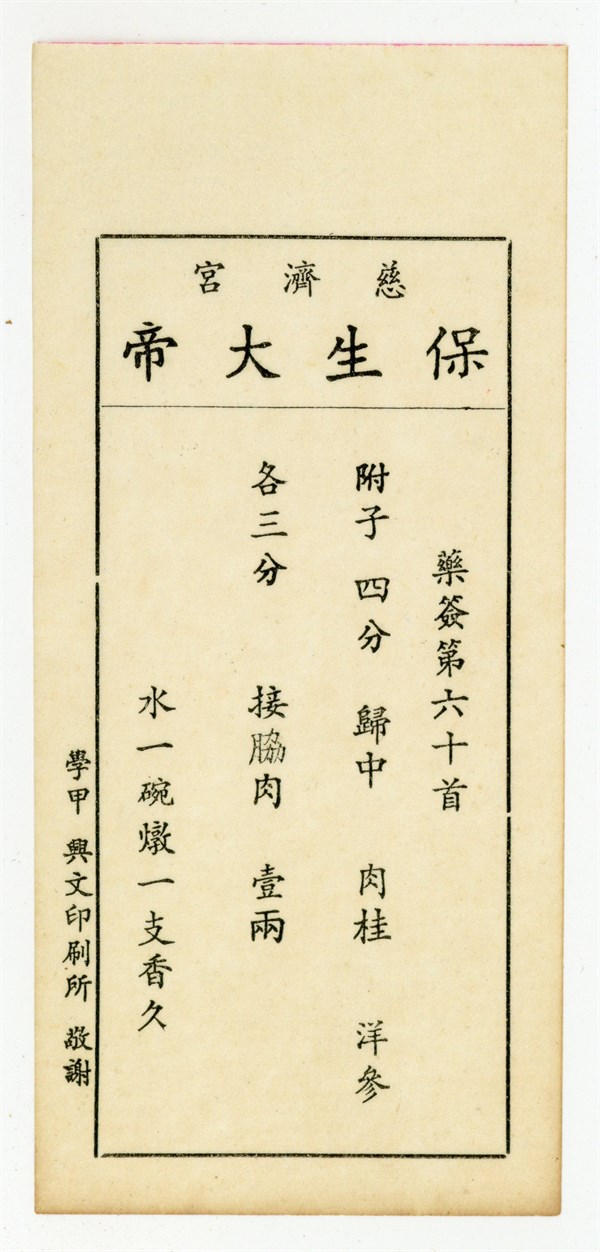 慈濟宮
保生大帝
藥簽第六十首
附子 四分 歸中 肉桂 洋參
各三分 接脇肉 壹兩
水一碗燉一支香久
學甲 興文印刷所 敬謝